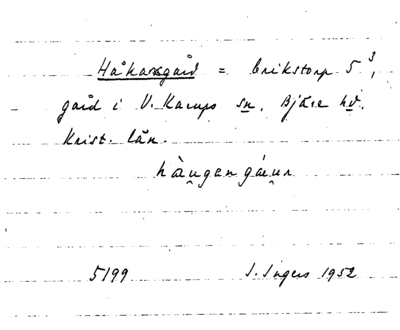 Håkansgård = Erikstorp 5³,
gård i V. Karups sn, Bjäre hd.
Krist. län.
hàu̯gangáu̯ʀn
5199 I. Ingers 1952